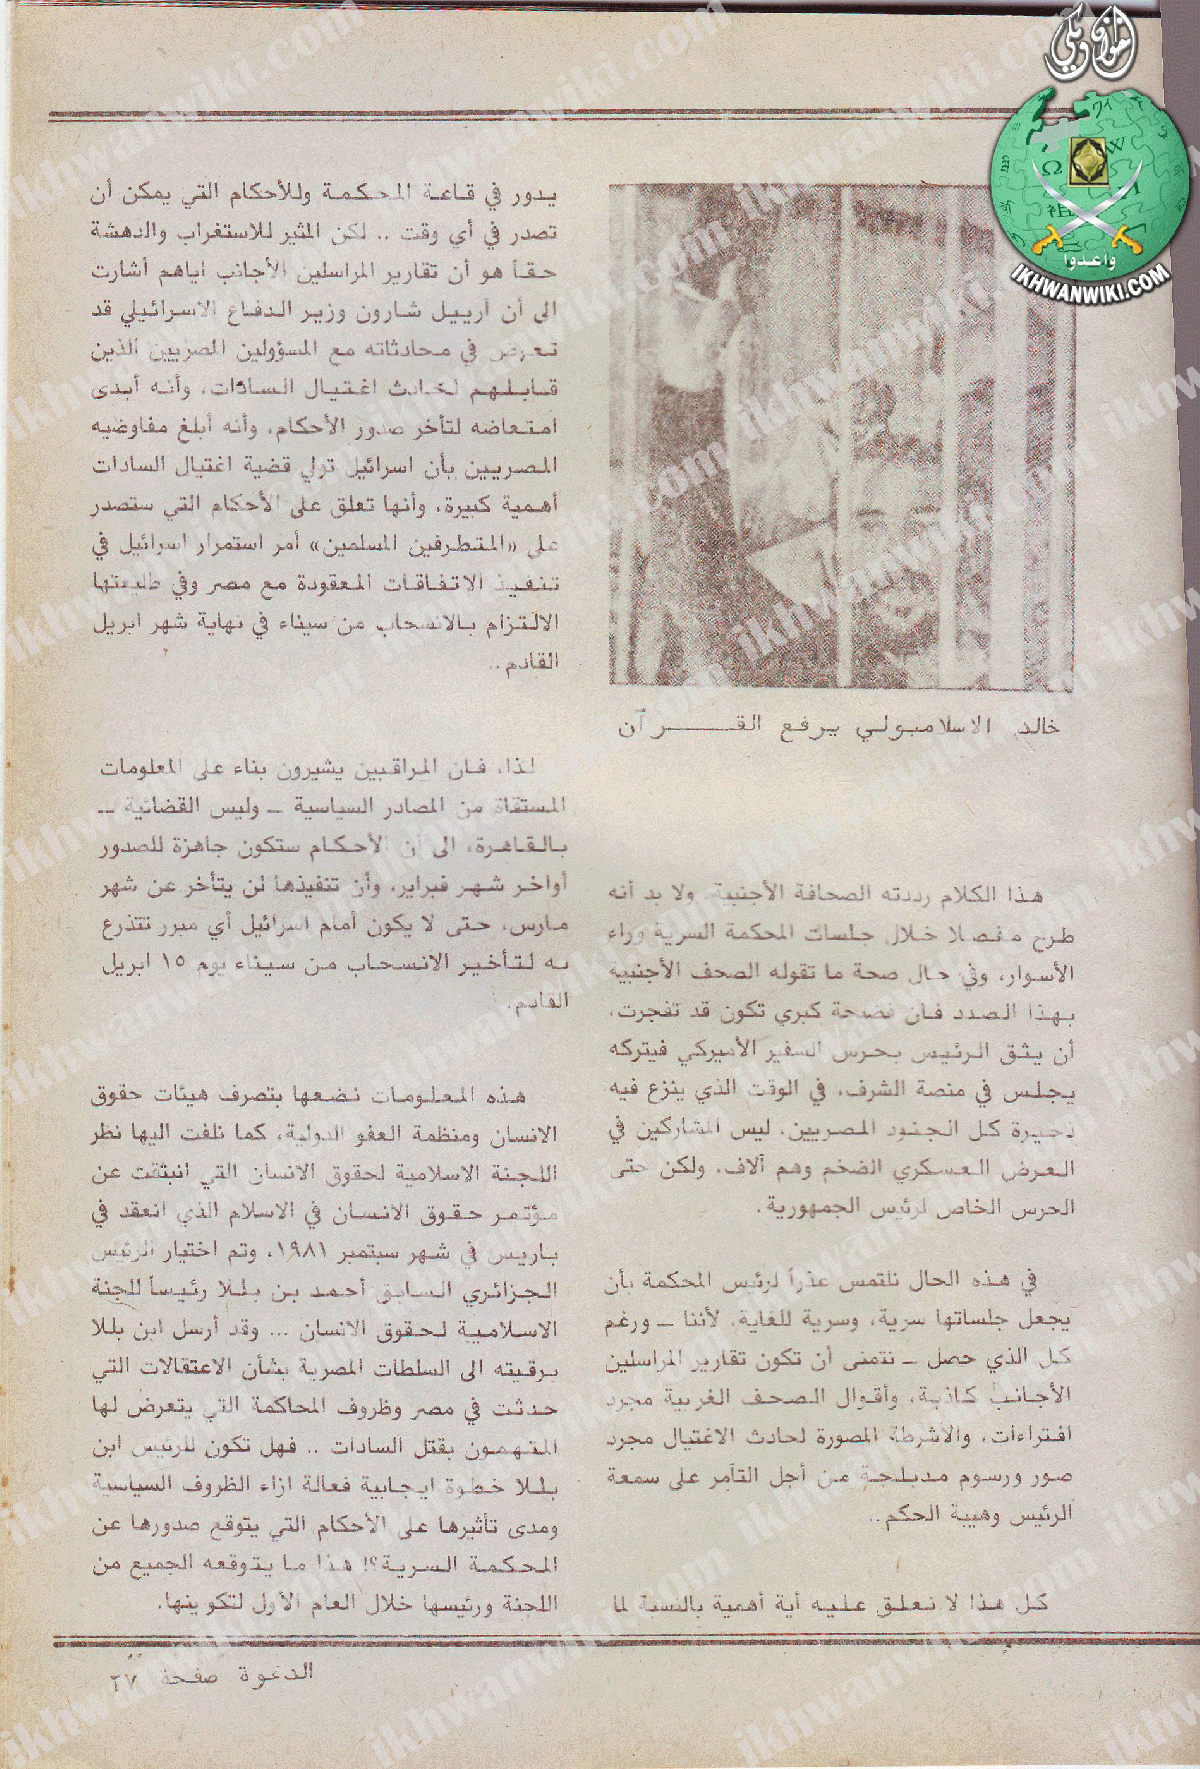 اخوان ويكي
واعدوا
IKHWANWIKI.COM
خالد الاسلامبولي يرفع القــــرآن
هذا الكلام رددته الصحافة الأجنبية، ولا بد أنه
طرح مفصلا خلال جلسات المحكمة السرية وراء
الأسوار، وفي حال صحة ما تقوله الصحف الأجنبية
بهذا الصدد فان فضحة كبري تكون قد تفجرت،
أن يثق الرئيس بحرس السفير الأميركي فيتركه
يجلس في منصة الشرف، في الوقت الذي ينزع فيه
ذخيرة كل الجنود المصريين، ليس المشاركين في
العرض العسكري الضخم وهم آلاف، ولكن حتى
الحرس الخاص لرئيس الجمهورية.
في هذه الحال نلتمس عذراً لرئيس المحكمة بأن
يجعل جلساتها سرية، وسرية للغاية، لأننا ــ ورغم
كل الذي حصل ــ نتمنى أن تكون تقارير المراسلين
الأجانب كاذبة، وأقوال الصحف الغربية مجرد
افتراءات، والأشرطة المصورة لحادث الاغتيال مجرد
صور ورسوم مدبلجة من أجل التآمر على سمعة
الرئيس وهيبة الحكم..
كل هذا لا نعلق عليه أية أهمية بالنسبة لما
يدور في قاعة المحكمة وللأحكام التي يمكن أن
تصدر في أي وقت .. لكن المثير للاستغراب والدهشة
حقاً هو أن تقارير المراسلين الأجانب اياهم أشارت
الى أن آرييل شارون وزير الدفاع الاسرائيلي قد
تعرض في محادثاته مع المسؤولين المصريين الذين
قابلهم لحادث اغتيال السادات، وأنه أبدى
امتعاضه لتأخر صدور الأحكام، وأنه أبلغ مفاوضيه
المصريين بأن اسرائيل تولي قضية اغتيال السادات
أهمية كبيرة، وأنها تعلق على الأحكام التي ستصدر
على «المتطرفين المسلمين» أمر استمرار اسرائيل في
تنفيذ الاتفاقات المعقودة مع مصر وفي طليعتها
الالتزام بالانسحاب من سيناء في نهاية شهر ابريل
القادم..
لذا، فان المراقبين يشيرون بناء على المعلومات
المستقاة من المصادر السياسية ــ وليس القضائية ــ
بالقاهرة، الى أن الأحكام ستكون جاهزة للصدور
أواخر شهر فبراير، وأن تنفيذها لن يتأخر عن شهر
مارس، حتى لا يكون أمام اسرائيل أي مبرر تتذرع
به لتأخير الانسحاب من سيناء يوم ١٥ ابريل
القادم.
هذه المعلومات نضعها بتصرف هيئات حقوق
الانسان ومنظمة العفو الدولية، كما نلفت اليها نظر
اللجنة الاسلامية لحقوق الانسان التي انبثقت عن
مؤتمر حقوق الانسان في الاسلام الذي انعقد في
باريس في شهر سبتمبر ١٩٨١، وتم اختيار الرئيس
الجزائري السابق أحمد بن بللا رئيساً للجنة
الاسلامية لحقوق الانسان ... وقد أرسل ابن بللا
برقيته الى السلطات المصرية بشأن الاعتقالات التي
حدثت في مصر وظروف المحاكمة التي يتعرض لها
المتهمون بقتل السادات .. فهل تكون للرئيس ابن
بللا خطوة ايجابية فعالة ازاء الظروف السياسية
ومدى تأثيرها على الأحكام التي يتوقع صدورها عن
المحكمة السرية؟! هذا ما يتوقعه الجميع من
اللجنة ورئيسها خلال العام الأول لتكوينها.
الدعوة صفحة ٢٧